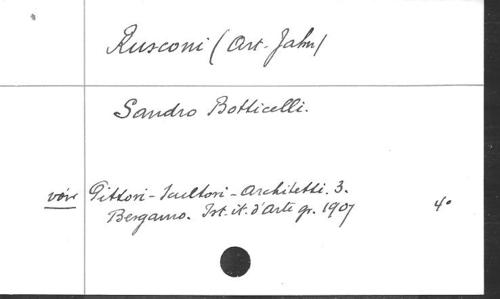 Rusconi (Art. Jahn)
Sandro Botticelli.
voir Pittori-Scultori-Architetti. 3.
Bergamo. Ist. it. d'Arte gr. 1907 4°